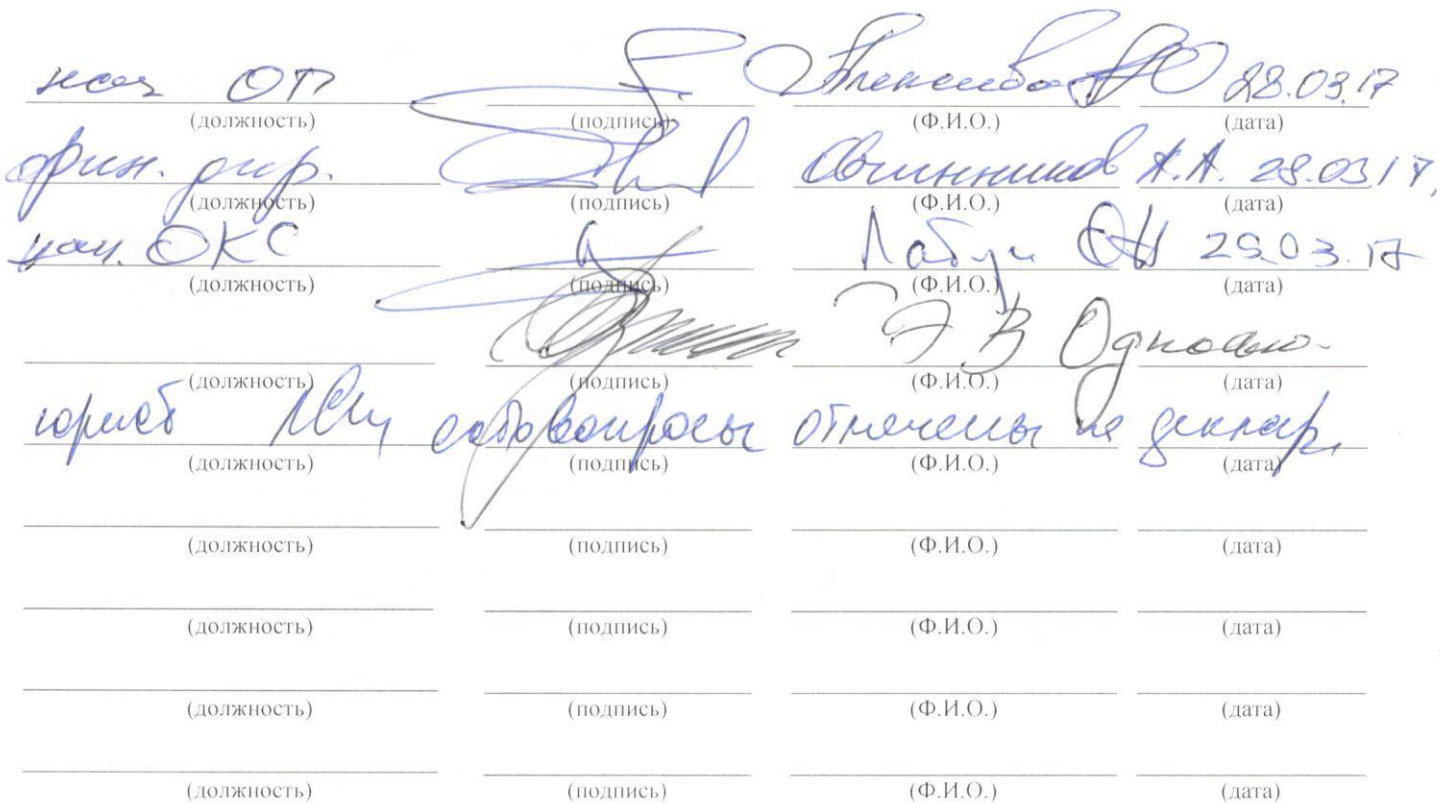 нач ОП 28.03.17
(должность) (подпись) (Ф.И.О.) (дата)
фин. дир. Овчинников А.А. 28.03.17.
(должность) (подпись) (Ф.И.О.) (дата)
нач. ОКС 29.03.17
(должность) (подпись) (Ф.И.О.) (дата)
Э В
(должность) (подпись) (Ф.И.О.) (дата)
юрист вопросы отмечены
(должность) (подпись) (Ф.И.О.) (дата)
(должность) (подпись) (Ф.И.О.) (дата)
(должность) (подпись) (Ф.И.О.) (дата)
(должность) (подпись) (Ф.И.О.) (дата)
(должность) (подпись) (Ф.И.О.) (дата)